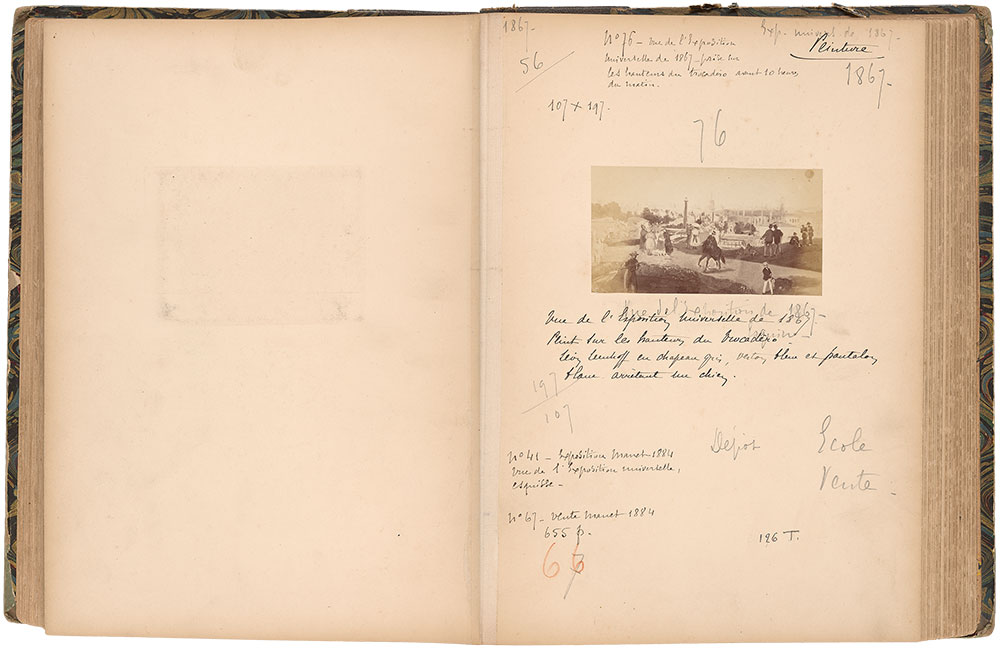 1867-
Exp. univers. de 1867-
Peinture
1867-
56
n° 76 - vue de l'Exposition
universelle de 1867 - prise sur
les hauteurs du Trocadéro avant 10 heures
du matin.
107 x 197.
76
Vue de l'Exposition de 1867-
Vue de l'Exposition universelle de 1867
Peint sur les hauteurs du Trocadéro.
Léon Leenhoff en chapeau gris, veston bleu et pantalon
blanc arrêtant un chien.
197
107
Dépot
Ecole
Vente -
n° 41 - Exposition Manet 1884
Vue de l'Exposition universelle,
esquisse -
n° 67 - vente Manet 1884
655 f.
126 T.
66